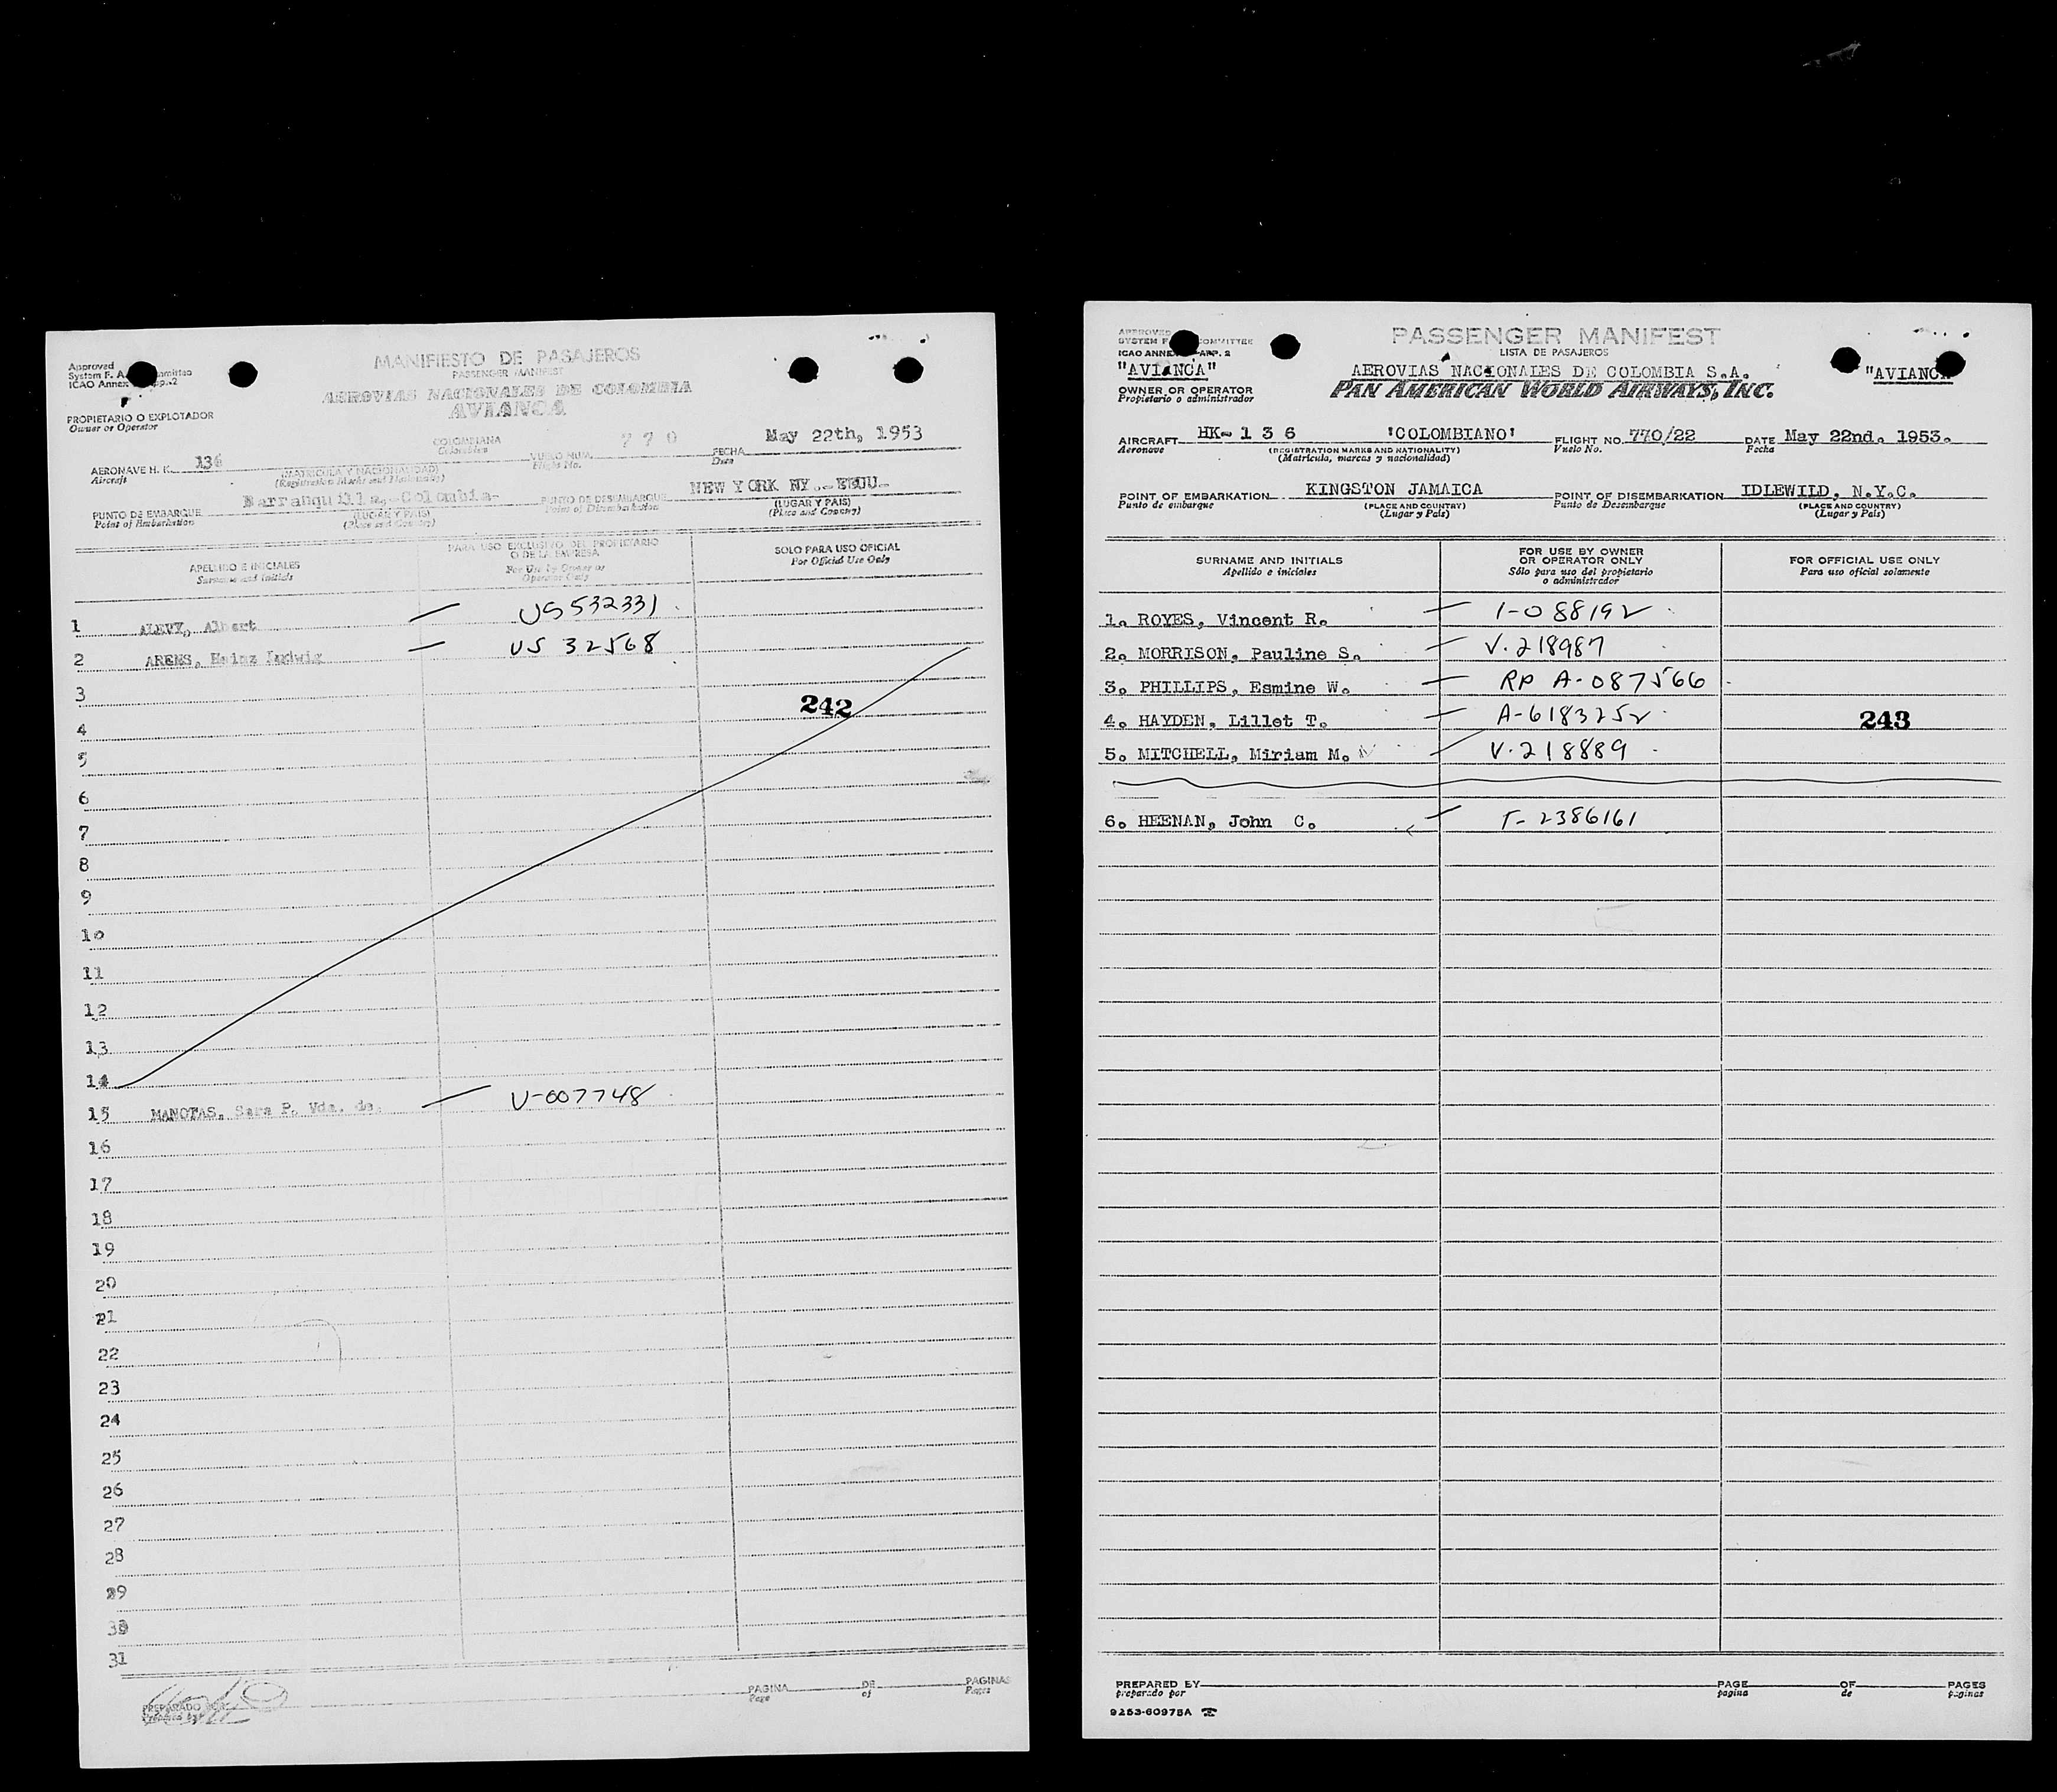 Approved
System F. A.
ICAO Annex
MANIFIESTO DE PASAJEROS
PASSENGER MANIFEST
AEROVIAS NACIONALES DE COLOMBIA
AVIANCA
PROPIETARIO O EXPLOTADOR
Owner or Operator
AERONAVE H. K. 136
Aircraft
COLOMBIANA
Colombian
(MATRICULA Y NACIONALIDAD)
(Registration Marks and Nationality)
VUELO NUM. 770
Flight No.
FECHA May 22th, 1953
Date
PUNTO DE EMBARQUE Barranquilla,-Colombia-
Point of Embarkation
(LUGAR Y PAIS)
(Place and Country)
PUNTO DE DESEMBARQUE NEW YORK NY.-EEUU-
Point of Disembarkation
(LUGAR Y PAIS)
(Place and Country)
APELLIDO E INICIALES
Surname and Initials
PARA USO EXCLUSIVO DEL PROPIETARIO
O DE LA EMPRESA
For Use by Owner or
Operator Only
SOLO PARA USO OFICIAL
For Official Use Only
1 Albert — US 532331
2 ARENS, Heinz Ludwig — US 32568
3
242
4
5
6
7
8
9
10
11
12
13
14
15 MANOTAS, Sara P. Vda. de. — V-007748
16
17
18
19
20
21
22
23
24
25
26
27
28
29
30
31
PREPARADO POR
Prepared by
PAGINA DE PAGINAS
Page of Pages
APPROVED
SYSTEM F COMMITTEE
ICAO ANNEX APP. 2
"AVIANCA"
OWNER OR OPERATOR
Propietario o administrador
PASSENGER MANIFEST
LISTA DE PASAJEROS
AEROVIAS NACIONALES DE COLOMBIA S.A.
"AVIANCA
PAN AMERICAN WORLD AIRWAYS, INC.
AIRCRAFT HK- 1 3 6 'COLOMBIANO' FLIGHT NO. 770/22 DATE May 22nd. 1953.
Aeronave (REGISTRATION MARKS AND NATIONALITY) Vuelo No. Fecha
(Matrícula, marcas y nacionalidad)
POINT OF EMBARKATION KINGSTON JAMAICA POINT OF DISEMBARKATION IDLEWILD, N.Y.C.
Punto de embarque (PLACE AND COUNTRY) Punto de Desembarque (PLACE AND COUNTRY)
(Lugar y País) (Lugar y País)
SURNAME AND INITIALS
Apellido e iniciales
FOR USE BY OWNER
OR OPERATOR ONLY
Sólo para uso del propietario
o administrador
FOR OFFICIAL USE ONLY
Para uso oficial solamente
1. ROYES, Vincent R. — I-088192
2. MORRISON, Pauline S. — V.218987
3. PHILLIPS, Esmine W. — RP A-087566
4. HAYDEN, Lillet T. — A-6183252 243
5. MITCHELL, Miriam M. — V.218889
6. HEENAN, John C. — T-2386161
PREPARED BY PAGE OF PAGES
preparado por pagina de páginas
9253-60975A